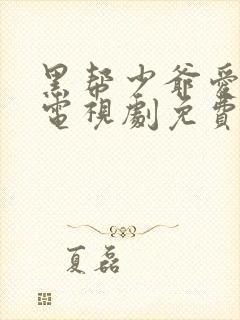 黑帮少爷愛
電視劇免費
夏磊